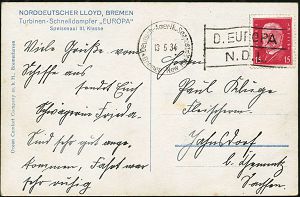 NORDDEUTSCHER LLOYD, BREMEN
Turbinen-Schnelldampfer „EUROPA"
Speisesaal III. Klasse
Viele Grüße vom
Schiffe aus
sendet Euch
Schwägerin Frieda.
Sind sehr gut ange-
kommen, Fahrt war
sehr ruhig
13.5.34
D. EUROPA
N.D.
15 15
Herrn
Paul Kluge
Fleischerm.
Jahnsdorf
b. Chemnitz
Sachsen